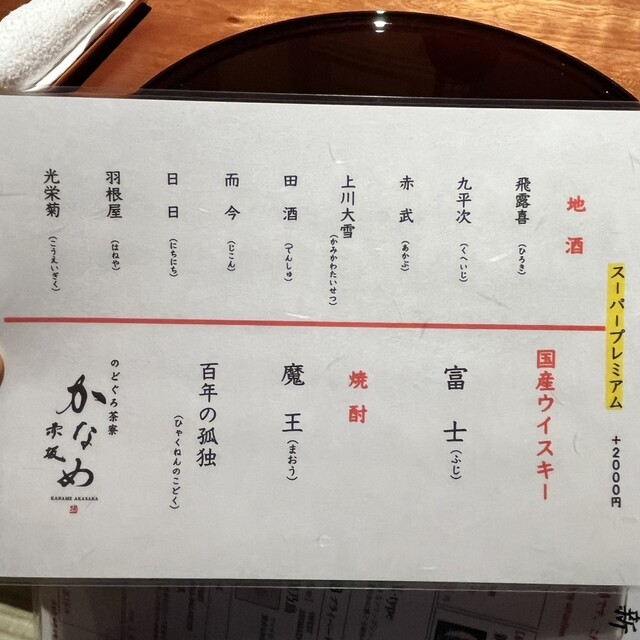 スーパープレミアム +2000円
地酒
飛露喜(ひろき)
九平次(くへいじ)
赤武(あかぶ)
上川大雪(かみかわたいせつ)
田酒(でんしゅ)
而今(じこん)
日日(にちにち)
羽根屋(はねや)
光栄菊(こうえいぎく)
国産ウイスキー
富士(ふじ)
焼酎
魔王(まおう)
百年の孤独
(ひゃくねんのこどく)
のどぐろ茶寮
かなめ
赤坂
KANAME AKASAKA
新